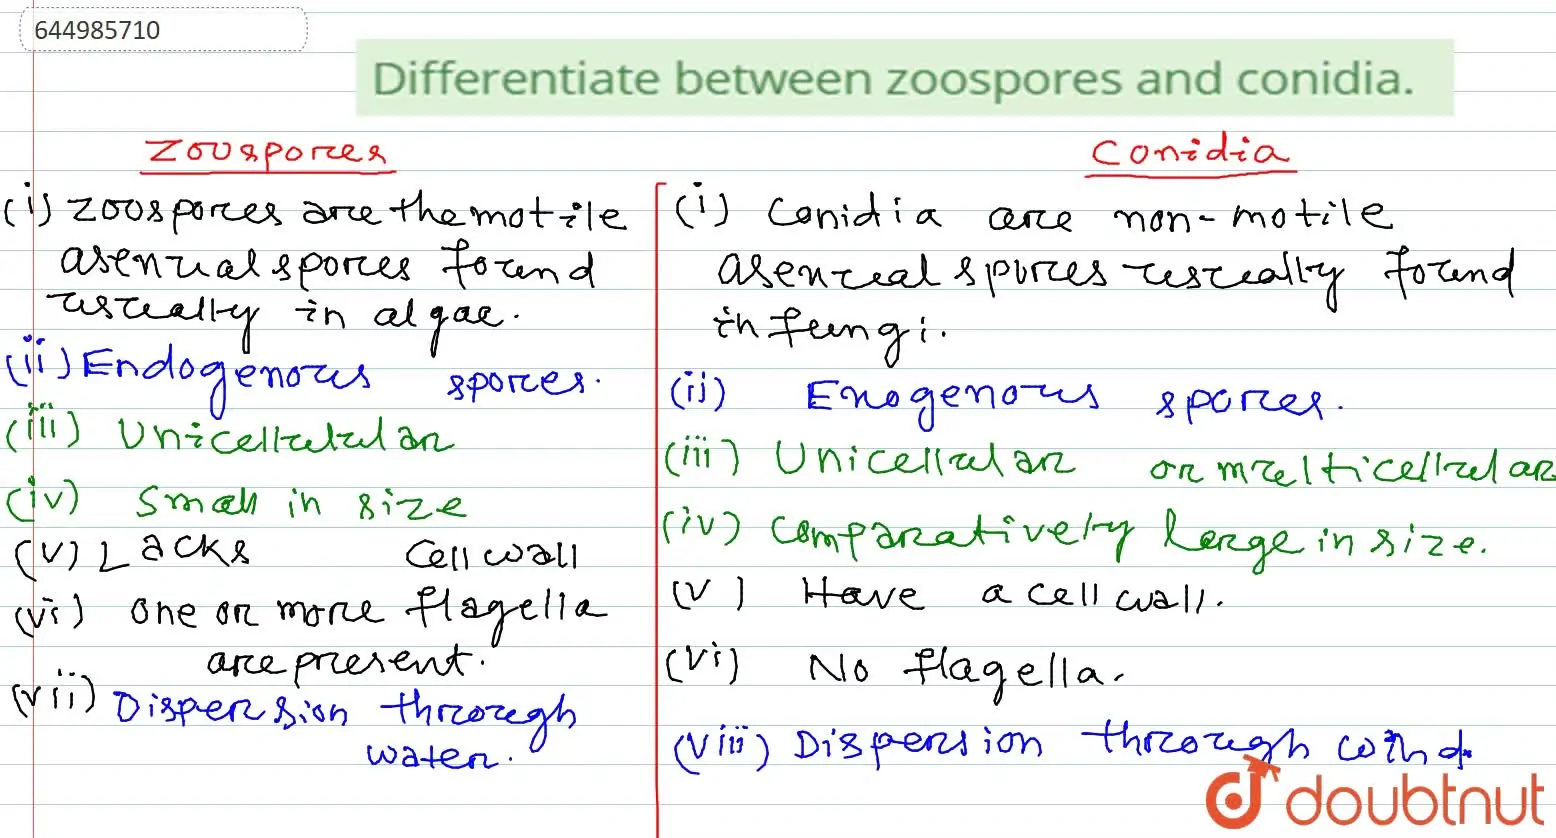 644985710
Differentiate between zoospores and conidia.
Zoospores
(i) Zoospores are the motile
asexual spores found
usually in algae.
(ii) Endogenous spores.
(iii) Unicellular
(iv) Small in size
(v) Lacks cell wall
(vi) One or more flagella
are present.
(vii) Dispersion through
water.
Conidia
(i) Conidia are non-motile
asexual spores usually found
in fungi.
(ii) Exogenous spores.
(iii) Unicellular or multicellular
(iv) Comparatively large in size.
(v) Have a cell wall.
(vi) No flagella.
(viii) Dispersion through wind.
doubtnut